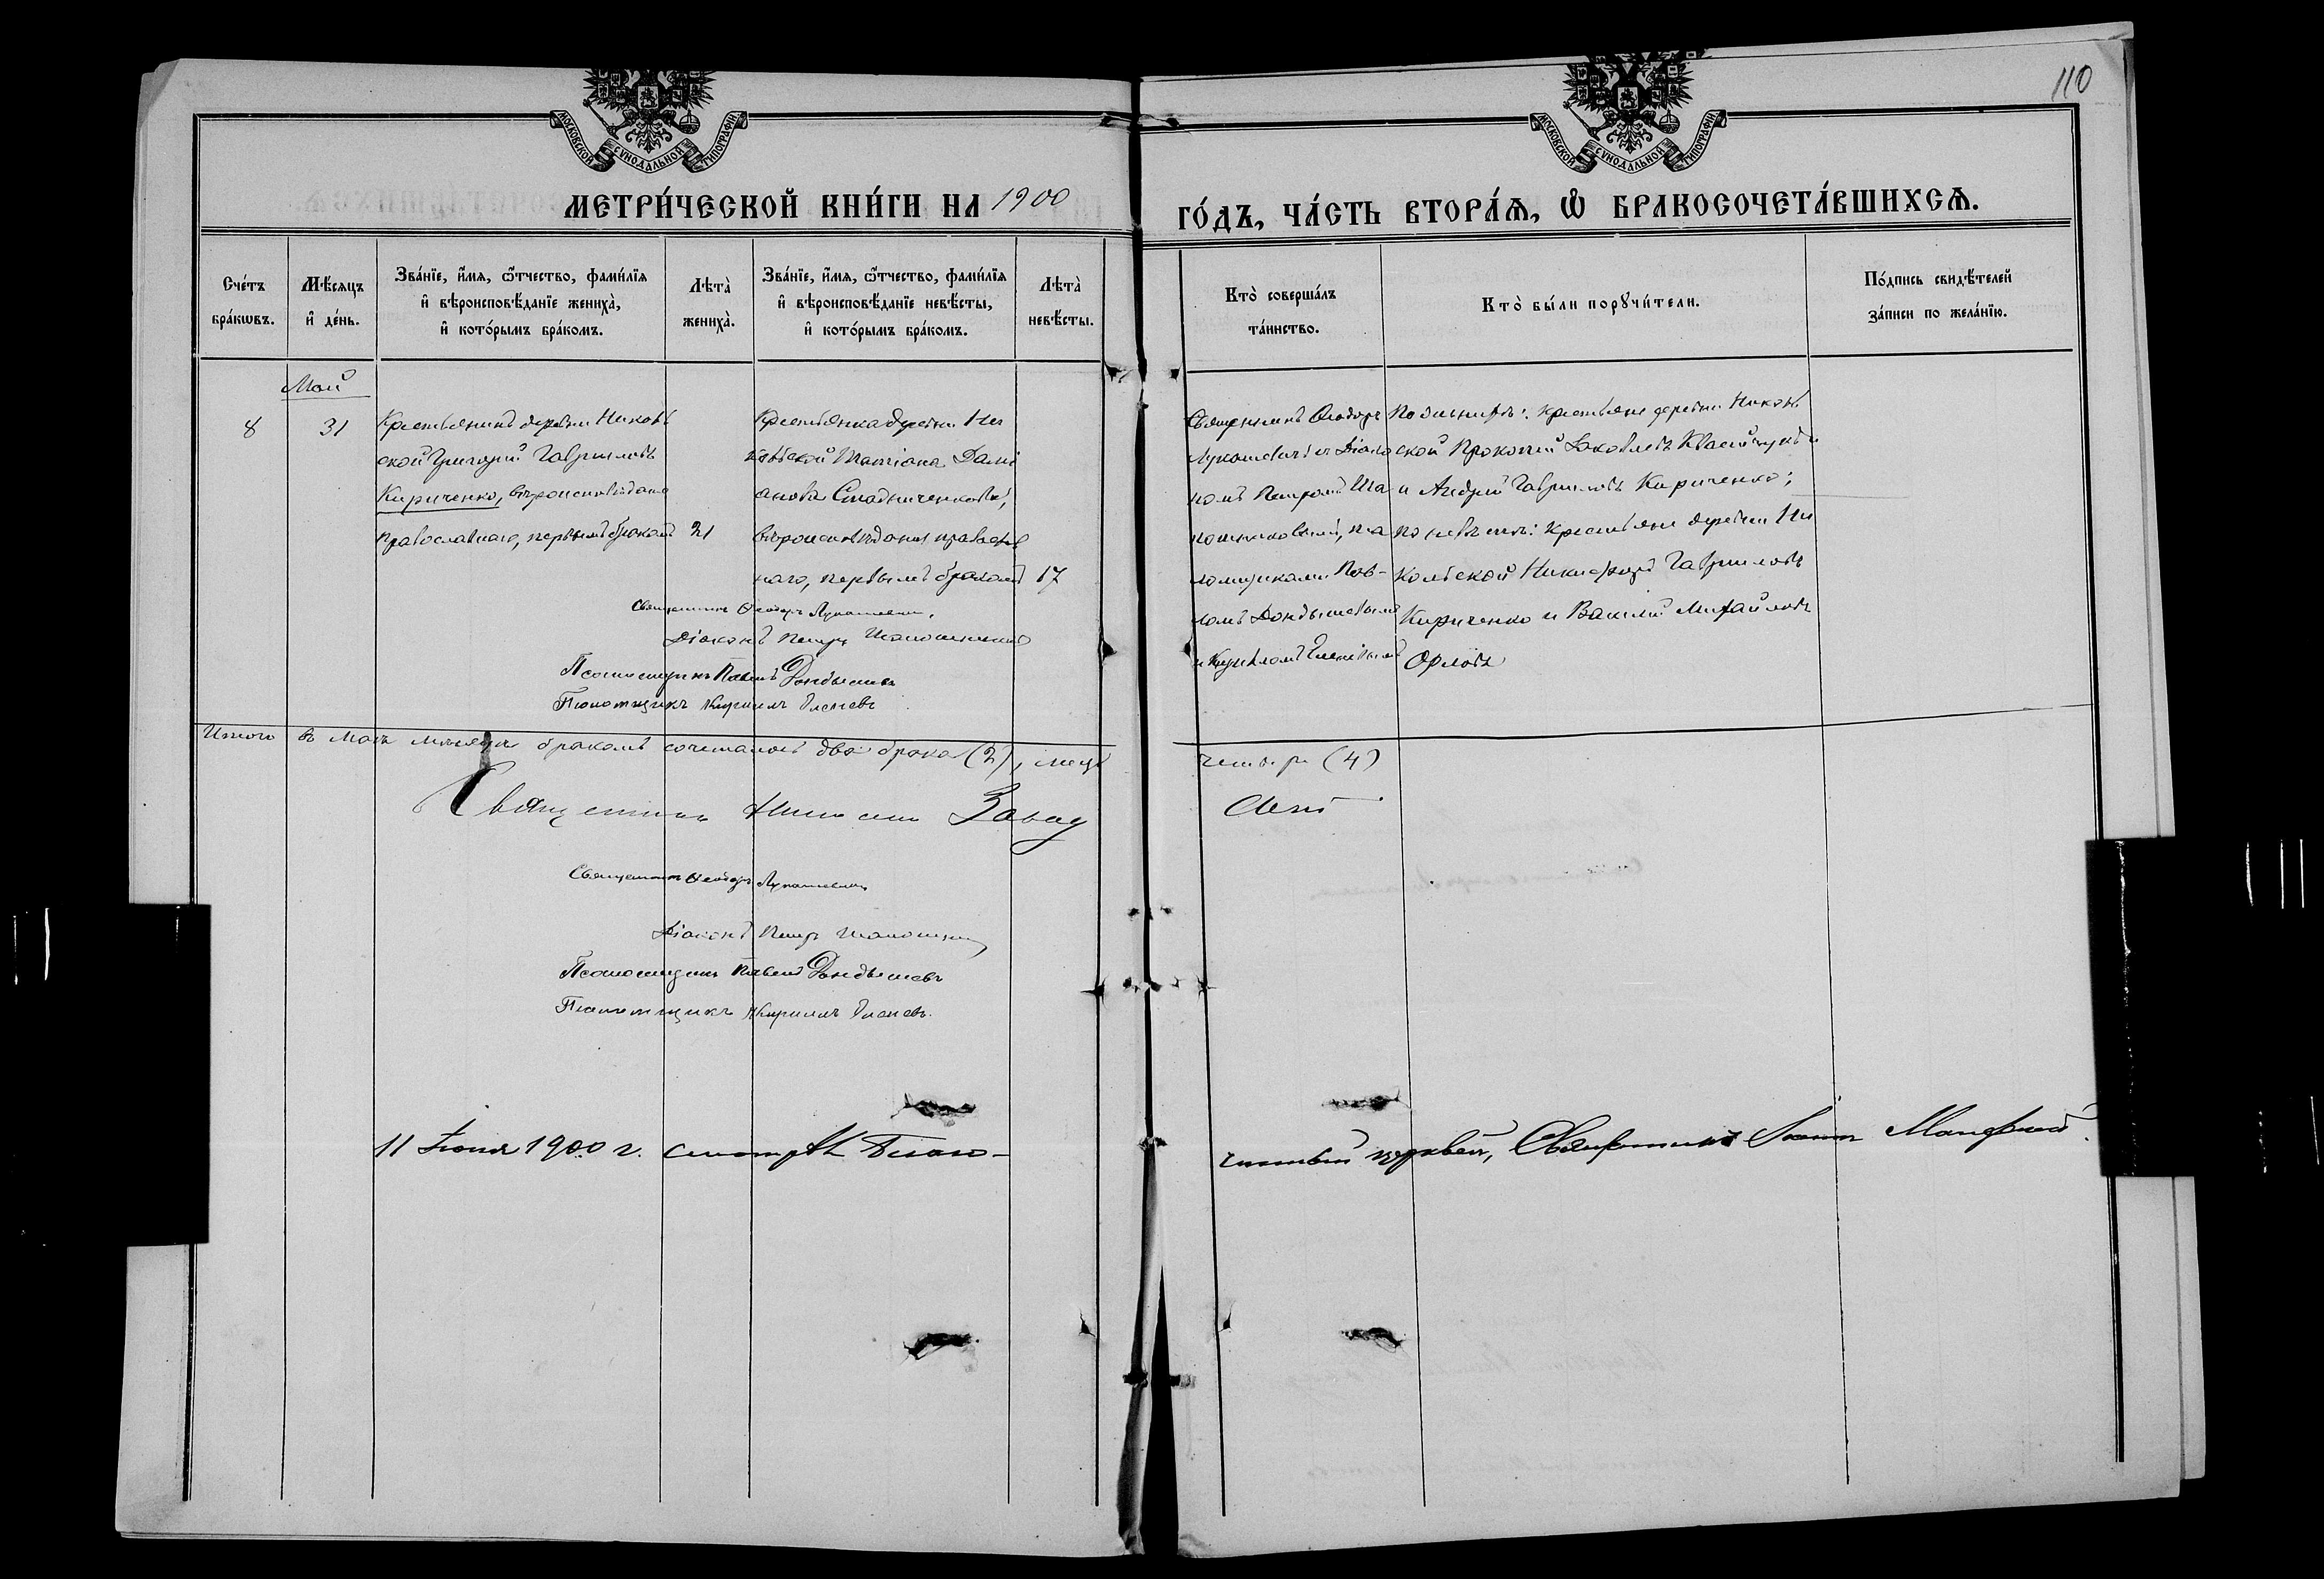 110
МОСКОВСКОЙ СѴНОДАЛЬНОЙ ТИПОГРАФІИ
МОСКОВСКОЙ СѴНОДАЛЬНОЙ ТИПОГРАФІИ
МЕТРИ́ЧЕСКОЙ КНИ́ГИ НА 1900
ГО́ДЪ, ЧА́СТЬ ВТОРА́Ѧ, Ѡ҆ БРАКОСОЧЕТА́ВШИХСѦ.
Сче́тъ
бра́кѡвъ.
Мѣ́сяцъ
и҆ де́нь.
Зва́нїе, и҆́мя, ѻ҆́тчество, фами́лїя
и҆ вѣроисповѣ́данїе жениха̀,
и҆ кото́рымъ бра́комъ.
Лѣта̀
жениха̀.
Зва́нїе, и҆́мя, ѻ҆́тчество, фами́лїя
и҆ вѣроисповѣ́данїе невѣ́сты,
и҆ кото́рымъ бра́комъ.
Лѣта̀
невѣ́сты.
Кто̀ соверша́лъ
та́инство.
Кто̀ бы́ли порꙋчи́тели.
По́дпись свидѣ́телей
за́писи по жела́нїю.
Май
8
31
Крестьянинъ деревни Николь
ской Григорій Гавриловъ
Кириченко, вѣроисповѣданія
православнаго, первымъ бракомъ
21
Крестьянка деревни Ни
кольской Татіана Дамі
анова Стадниченкова,
вѣроисповѣданія православ
наго, первымъ бракомъ
17
Священникъ Ѳеодоръ
Лукашевичъ и Діако
номъ Петромъ Ша
пошниковымъ, пса
ломщиками Пав-
ломъ Дондышевымъ
и Кирилломъ
По женихѣ: крестьяне деревни Николь
ской Прокопій Яковлевъ
и Андрей Гавриловъ Кириченко;
по невѣстѣ: крестьяне деревни Ни
кольской Никифоръ Гавриловъ
Кириченко и Василій Михайловъ
Орловъ
Священникъ Ѳеодоръ Лукашевичъ.
Діаконъ Петръ Шапошниковъ
Псаломщикъ Павелъ Дондышевъ
Псаломщикъ Кириллъ
Итого въ маѣ мѣсяцѣ бракомъ сочеталось два брака (2), лицъ
четыре (4)
Священникъ
Священникъ Ѳеодоръ Лукашевичъ
Діаконъ Петръ Шапошниковъ
Псаломщикъ Павелъ Дондышевъ
Псаломщикъ Кириллъ
11 Іюня 1900 г. смотрѣлъ Благо-
чинный церквей, Священникъ Іоаннъ